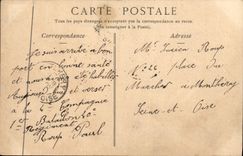 CARTE POSTALE
Tous les pays étrangers n'acceptent pas la correspondance au recto.
(Se renseigner à la Poste).
Correspondance
Adresse
Je suis arrivé a bon
port en bonne santé
et nous
et
a la Compagnie
1er
Régiment
Roux Paul
Mr Lucien Roux
No 22, place du
Marché a Montlhéry
Seine et Oise